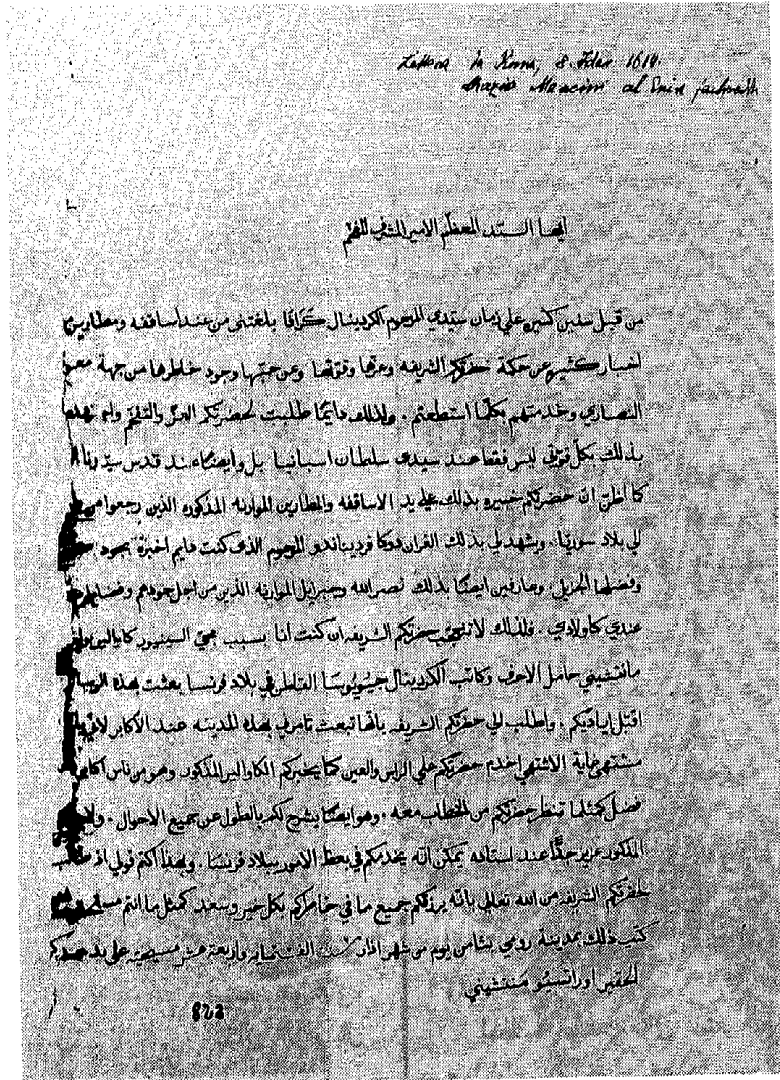 Lettera da Roma, 8 1614.
Orazio Mancini al
ايضا السيد المعظم الامير المشرف المفخم
من قبل سنين كثيره علي زمان سيدي المرحوم الكردينال كرافا بلغتني من عند اساقفه ومطارين
اخبار كثيره عن حكمة حضرتكم الشريفه وعزها وقوتها وعن محبتها وجود خاطرها من جهة جميع
النصاري وخدمتهم مكلما استطعتم . ولذلك دايمًا طلبت لحضرتكم العزّ والفخم
بذلك بكل قوتي ليس فقط عند سيدي سلطان اسبانيا بل وايضًا عند قدس سيدنا
كما اظن ان حضرتكم خبيره بذلك علي يد الاساقفه والمطارين الموارنه المذكوره الذين رجعوا من
الي بلاد سوريا . ويشهد لي بذلك القران دوكا فرديناندو المرحوم الذي كنت دايم اخبره بجود
وفضلها الجزيل . وعارفين ايضًا بذلك نصر الله وجبرايل الموارنه الذين من اجل جودهم وفضلهم
عندي كاولادي . فلذلك لا تتعجب حضرتكم الشريفه ان كنت انا بسبب مجي السينيور كاوالير
مانتشيني حامل الاحرف وكاتب الكردينال جيويوسا القاطن في بلاد فرنسا بعثت بهذه
اقبل اياديكم . واطلب الي حضرتكم الشريفه بانها تبعث تامرني بهذه المدينه عند الاكابر لانني
مشتهي غاية الاشتهي اخدم حضرتكم علي الراس والعين كما يخبركم الكاوالير المذكور وهو من ناس اكابر
فضل كمثلما تنظر حضرتكم من الخطاب معه . وهو ايضًا يشرح لكم بالطول عن جميع الاحوال .
المذكور عزيز جدًا عند استاذه يمكن انه يخدمكم في بعض الامور ببلاد فرنسا . وبهذا اكتم قولي اذ
لحضرتكم الشريفه من الله تعالي بانه يرزقكم جميع ما في خاطركم بكل خير وسعد كمثل ما انتم
كتب ذلك بمدينة رومي بثامن يوم من شهر اذار سنت الف وستمايه واربعة عشر مسيحية علي يد عبدكم
الحقير اوراتسيو منتشيني
828